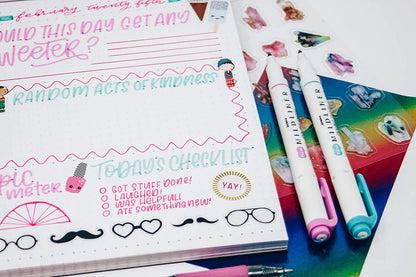 february twenty fifth
OULD THIS DAY GET ANY
WEETER?
RANDOM ACTS OF KINDNESS
TODAY'S CHECKLIST
PIC
METER
GOT STUFF DONE!
LAUGHED!
WAS HELPFUL!
ATE SOMETHING NEW!
YAY!
MILDLINER
MILDLINER